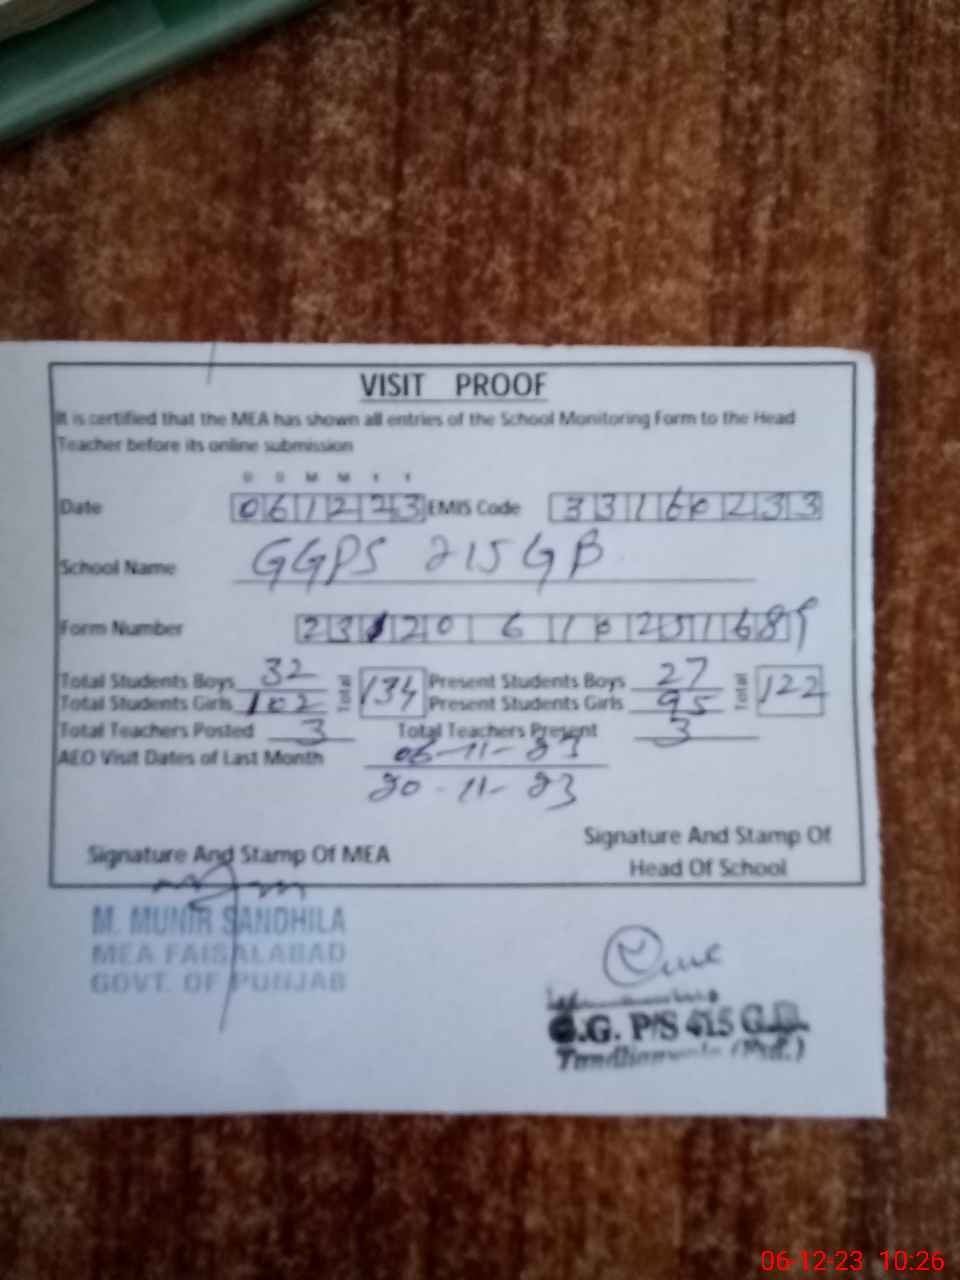 VISIT PROOF
It is certified that the MEA has shown all entries of the School Monitoring Form to the Head
Teacher before its online submission
D D M M Y Y
Date 061223 EMIS Code 33160233
School Name GGPS 215 GB
Form Number
Total Students Boys 32 Total 134 Present Students Boys 27 Total 122
Total Students Girls 102 Present Students Girls 95
Total Teachers Posted 3 Total Teachers Present 3
AEO Visit Dates of Last Month 06-11-23
20-11-23
Signature And Stamp Of MEA
Signature And Stamp Of
Head Of School
M. MUNIR SANDHILA
MEA FAISALABAD
GOVT. OF PUNJAB
G.G. P/S 415 G.B.
06-12-23 10:26